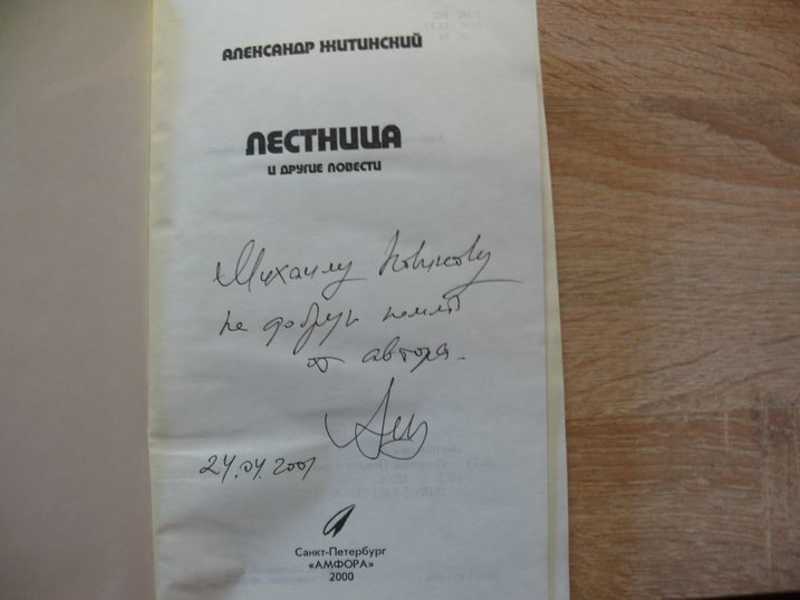 АЛЕКСАНДР ЖИТИНСКИЙ
ЛЕСТНИЦА
И ДРУГИЕ ПОВЕСТИ
Михаилу Новикову
на добрую память
от автора.
24.04.2001
Санкт-Петербург
«АМФОРА»
2000